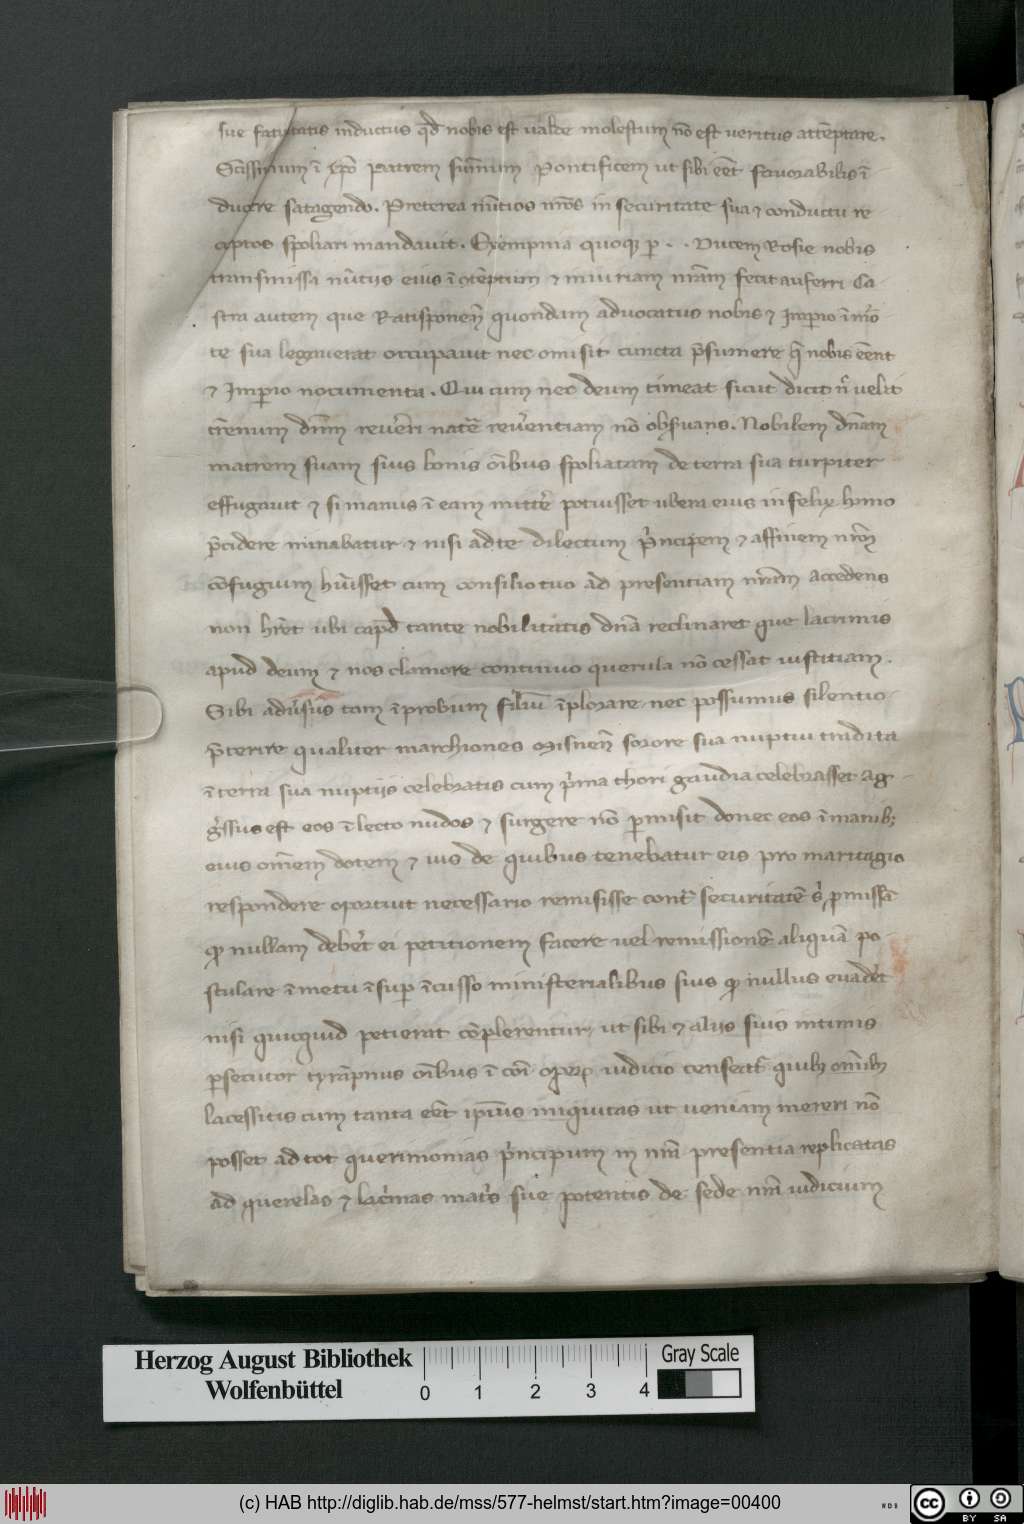 sue fatuitatis inductus qd̄ nobis est valde molestum nō est veritus attēptare.
Sc̄issimum ī xp̄o patrem sum̄um Pontificem ut sibi eēt favorabilis ī
ducere satagendo. Preterea nūtios nr̄os in securitate sua ⁊ conductu re
ceptos spoliari mandavit. Exempnia quoqꝫ ꝑ . . Ducem Rosie nobis
transmissa nūtiis eius ī ꝯtēptum ⁊ iniuriam nr̄am fecit auferri Ca
stra autem que Ratisponeñ quondam advocatus nobis ⁊ Imꝑio ī mō
te sua legaverat occupavit nec omisit cuncta p̄sumere q̄ nobis eēnt
⁊ Imꝑio nocumenta. Qui cum nec deum timeat sicut dicit nͬ velit
t̄renum dn̄m rever̄i nat̄e rev̄entiam nō obs̄vans. Nobilem dn̄am
matrem suam suis bonis oībus spoliatam de terra sua turpiter
effugavit ⁊ si manus ī eam mitt̄e potuisset ubera eius infelix homo
p̄cidere minabatur ⁊ nisi ad te dilectum p̄ncipem ⁊ affinem nr̄m
cōfugium hūisset cum consilio tuo ad presentiam nr̄am accedens
non hr̄et ubi cap̄d tante nobilitatis dn̄a reclinaret que lacrimis
apud deum ⁊ nos clamore continuo querula nō cessat iustitiam.
Sibi adūsus tam īprobum filiū īplorare nec possumus silentio
p̄terire qualiter marchiones Misneñ sorore sua nuptui tradita
ī terra sua nuptiis celebratis cum p̄ma thori gaudia celebrasset ag
ḡssus est eos ī lecto nudos ⁊ surgere nō ꝑmisit donec eos ī manibꝫ
eius om̄em dotem ⁊ ius de quibus tenebatur eis pro maritagio
respondere oportuit necessario remisisse cont̄ securitatē s̄ ꝓmissā
ꝙ nullam deb̄et ei petitionem facere vel remissionē aliquā po
stulare ī metu īsuꝑ īcusso ministerialibus suis ꝙ nullus evad̄et
nisi quicquid petierat cōplerentur, ut sibi ⁊ aliis suis intimis
ꝑsecutor tyrāpnus oībus ī cōi oꝑeꝝ iudicio censeat̄ quibꝫ om̄ibꝫ
lacessitis cum tanta eēt ip̄ius iniquitas ut veniam mereri nō
posset ad tot querimonias p̄ncipum in nr̄i presentia replicatas
ad querelas ⁊ lac̄mas mat̄s sue potentis de sede nr̄i iudicium
Herzog August Bibliothek
Wolfenbüttel
0 1 2 3 4
Gray Scale
(c) HAB http://diglib.hab.de/mss/577-helmst/start.htm?image=00400
WDB
cc BY SA